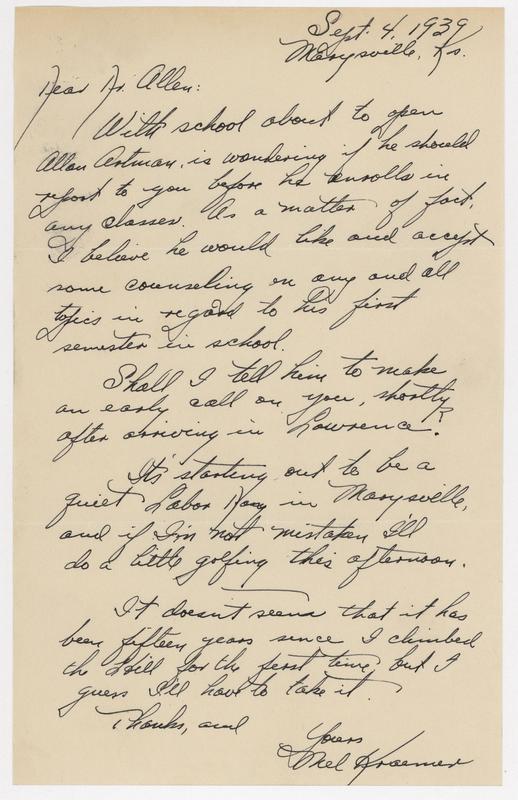 Sept. 4, 1939
Marysville, Ks.
Dear Dr. Allen:
With school about to open
Allan Artman, is wondering if he should
report to you before he enrolls in
any classes. As a matter of fact,
I believe he would like and accept
some counseling on any and all
topics in regard to his first
semester in school.
Shall I tell him to make
an early call on you, shortly
after arriving in Lawrence?
It's starting out to be a
quiet Labor Day in Marysville,
and if I'm not mistaken I'll
do a little golfing this afternoon.
It doesn't seem that it has
been fifteen years since I climbed
the Hill for the first time, but I
guess I'll have to take it.
Thanks, and
Yours
Mel Kraemer